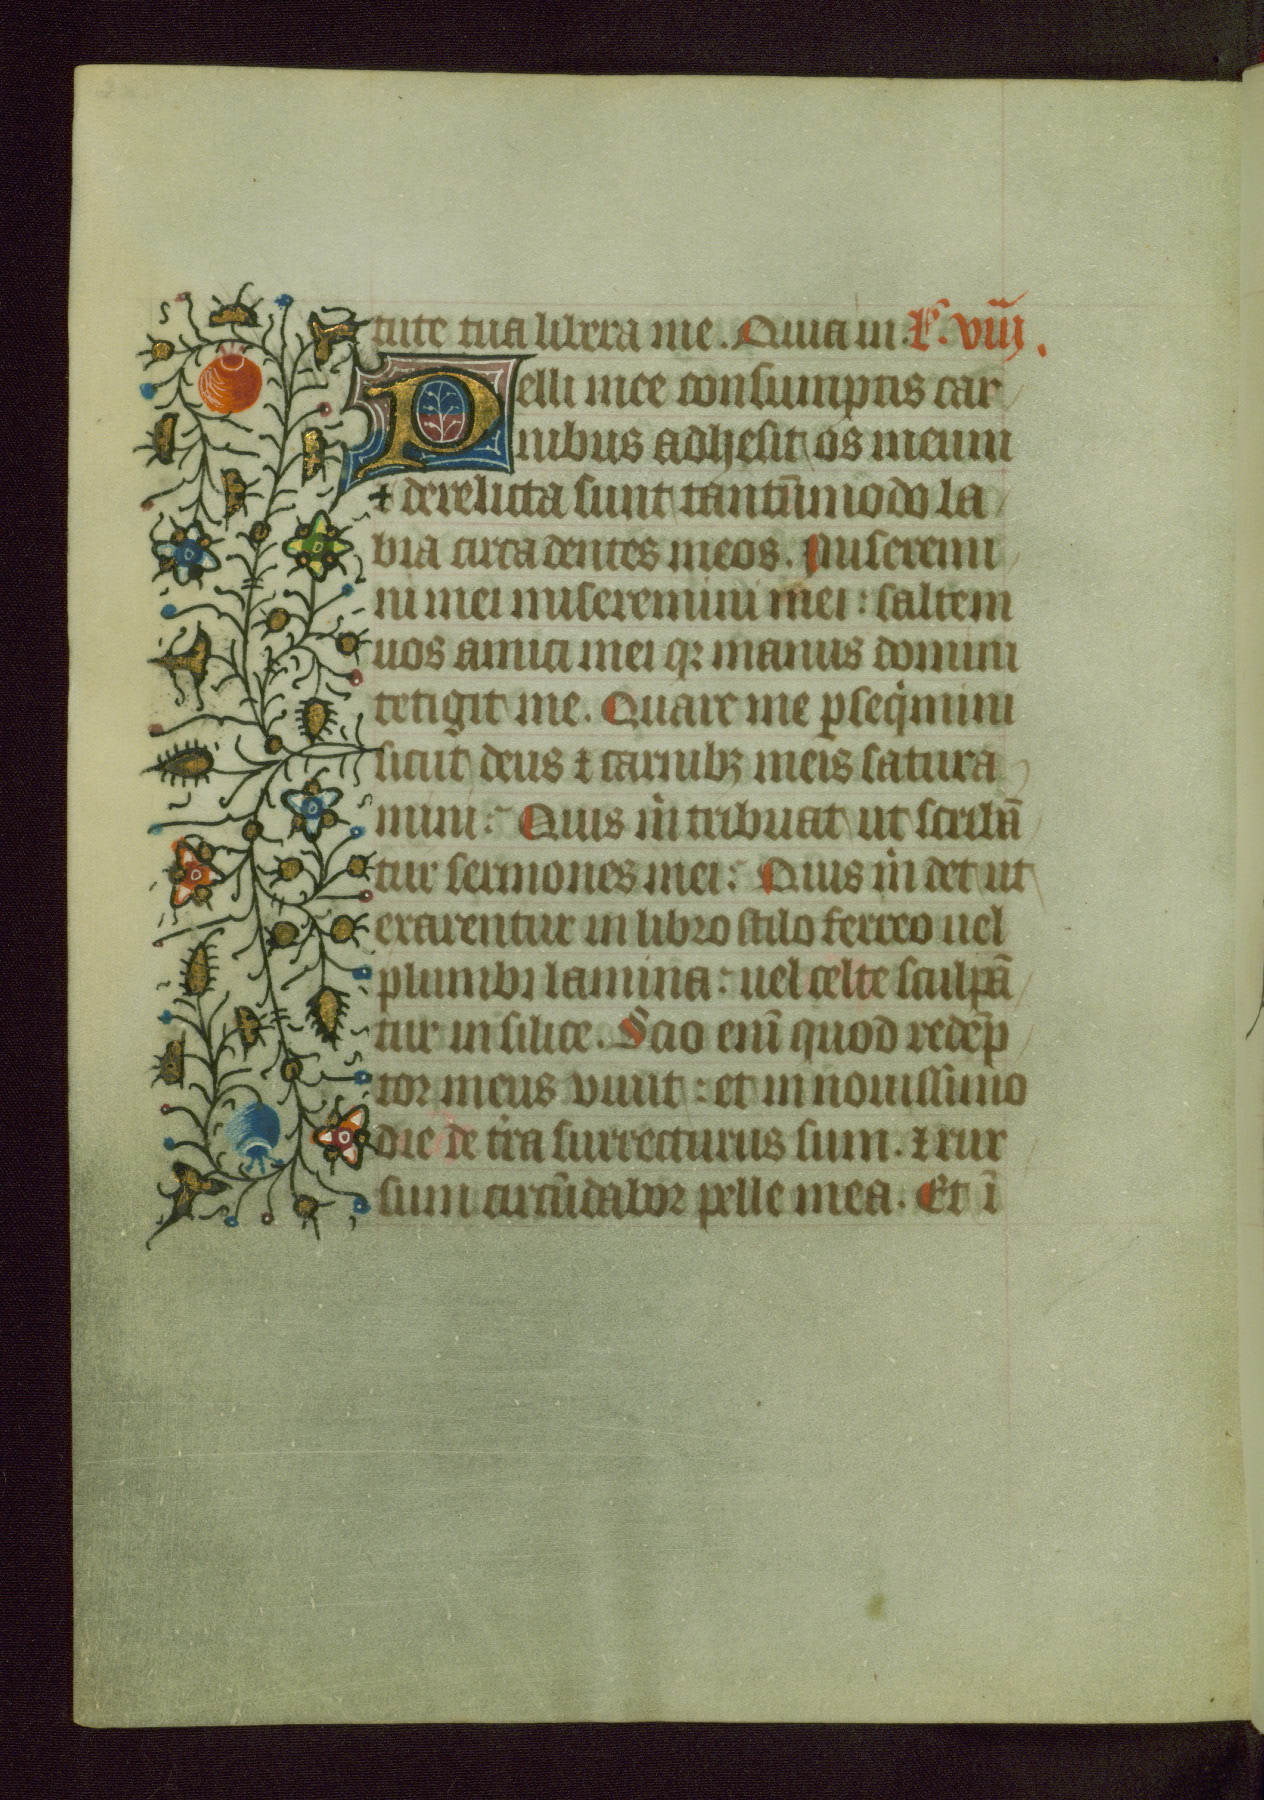 tute tua libera me. Quia in. L. viij.
Pelli mee consumptis car
nibus adhesit os meum
⁊ derelicta sunt tantūmodo la
bia circa dentes meos. Miseremi
ni mei miseremini mei : saltem
uos amici mei qꝛ manus domini
tetigit me. Quare me ꝑseq̇mini
sicut deus ⁊ carnibꝫ meis satura
mini: Quis ṁ tribuat ut scribā
tur sermones mei: Quis ṁ det ut
exarentur in libro stilo ferreo uel
plumbi lamina: uel celte sculpā
tur in silice. Scio enī quod redēp
tor meus viuit : et in nouissimo
die de t̓ra surrecturus sum. ⁊ rur
sum circūdabor pelle mea. Et ī